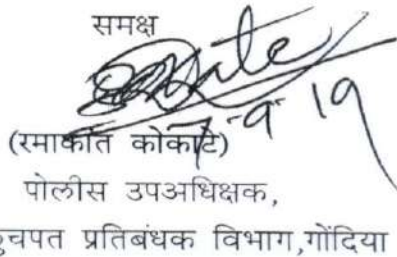 समक्ष
7-9-19
(रमाकांत कोकाटे)
पोलीस उपअधिक्षक,
चपत प्रतिबंधक विभाग,गोंदिया